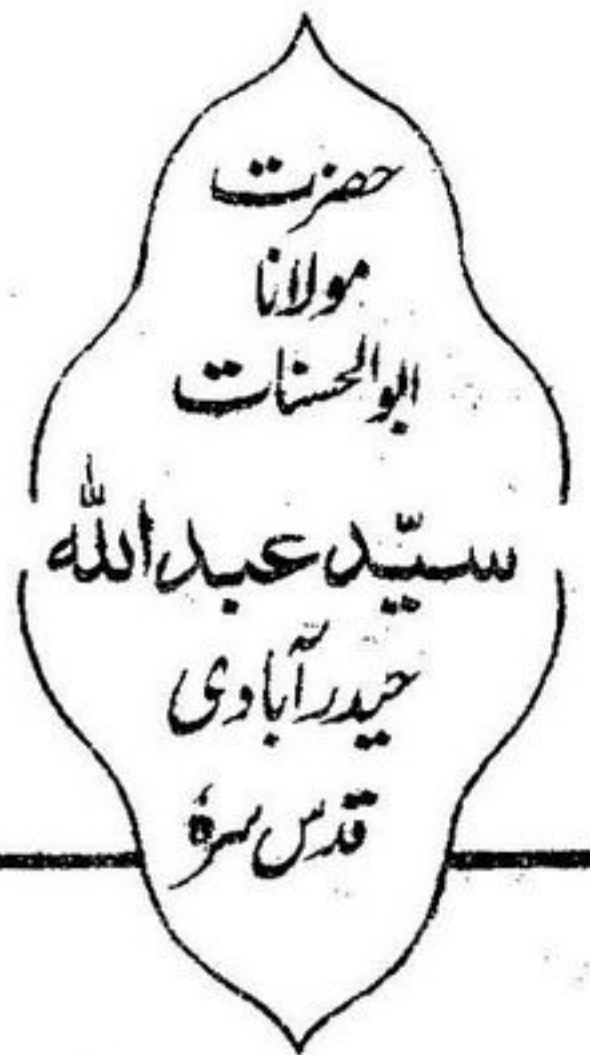 حضرت
مولانا
ابوالحسنات
سیّد عبداللہ
حیدرآبادی
قدس سرہٗ